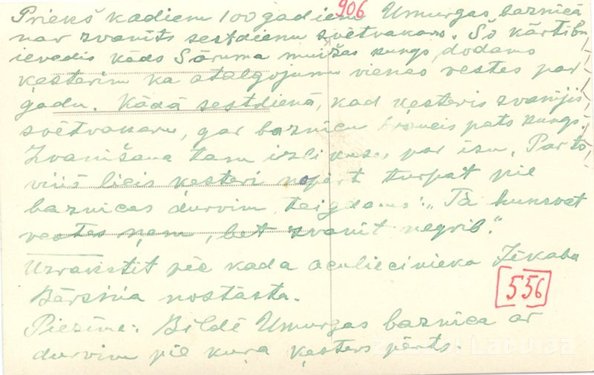 906
Priekš kādiem 100 gadiem Umurgas baznīcā
nav zvanīts sestdienu svētvakaru. Šo kārtību
ievedis kāds Sāruma muižas kungs, dodams
ķesterim kā atalgojumu vienas vestes par
gadu. Kādā sestdienā, kad ķesteris zvanijis
svētvakaru, gar baznīcu braucis pats kungs.
Zvanīšana tam izlikusēs par īsu. Par to
viņš licis ķesteri nopērt turpat pie
baznīcas durvīm teigdams: „Tā kunsvet
vestes ņem, bet zvanīt negrib."
Uzrakstīt pēc kāda aculiecinieka Jēkaba
Bērsiņa nostāsta.
556
Piezīme: Bildē Umurgas baznīca ar
durvīm pie kuŗa ķesters pērts.